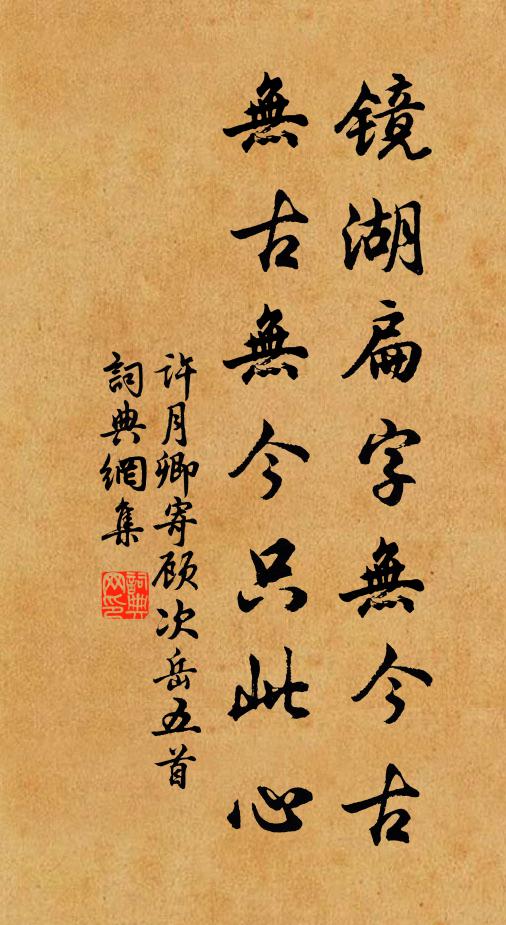 镜湖扁字無今古
無古無今只此心
许月卿寄顾次岳五首
詞典網集
詞典网印